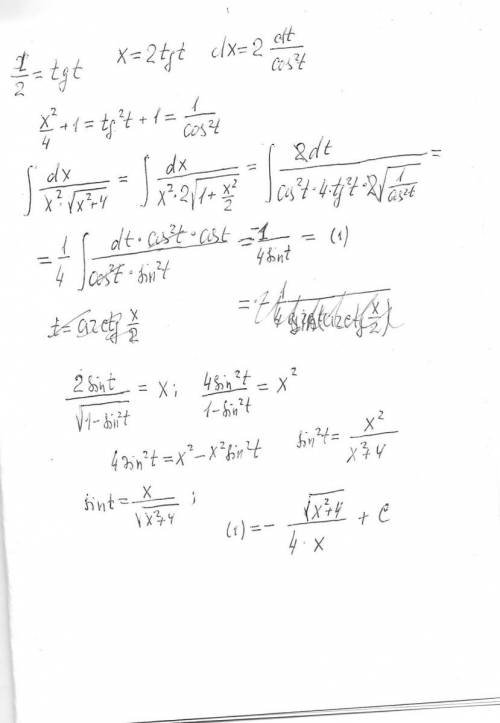 1/2 = tg t   x = 2 tg t   dx = 2 dt/cos²t
x²/4 + 1 = tg²t + 1 = 1/cos²t
∫ dx/(x²·√(x²+4)) = ∫ dx/(x²·2√(1+x²/2)) = ∫ 2dt/(cos²t·4·tg²t·2√(1/cos²t)) =
= 1/4 ∫ (dt·cos²t·cost)/(cos²t·sin²t) = -1/(4sint) = (1)
t = arctg x/2
2sint/√(1-sin²t) = x; 4sin²t/(1-sin²t) = x²
4sin²t = x² - x²sin²t   sin²t = x²/(x²+4)
sint = x/√(x²+4) ;
(1) = - √(x²+4)/(4·x) + C